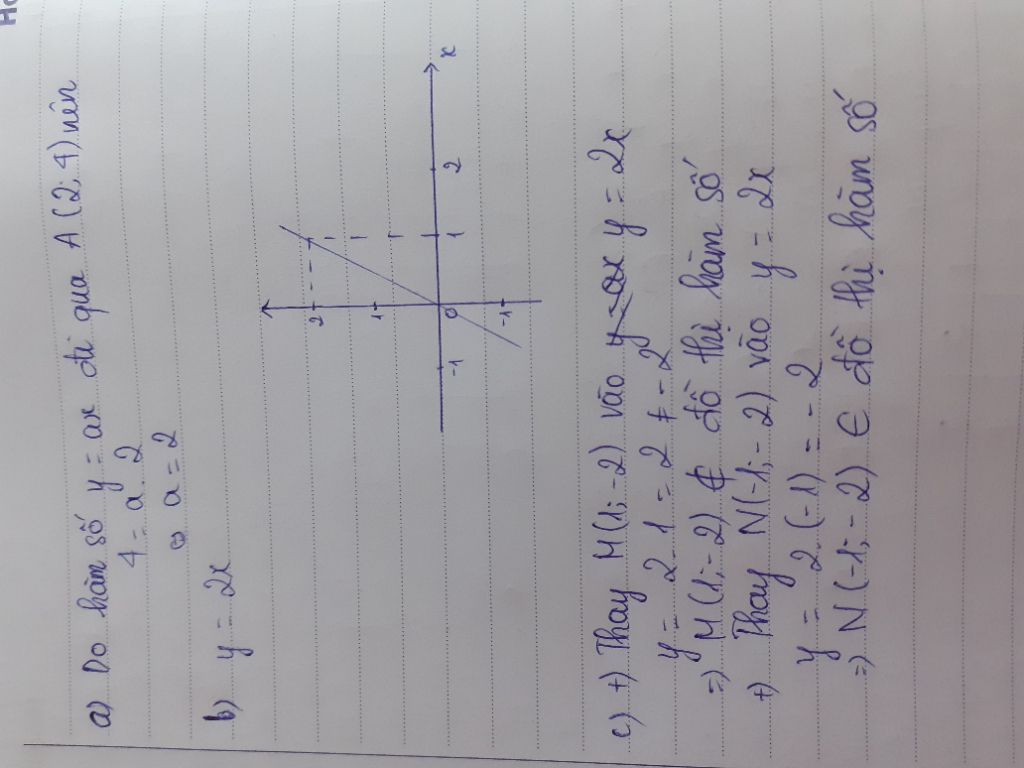 a) Do hàm số y = ax đi qua A(2; 4) nên
4 = a. 2
a = 2
b) y = 2x
2
1
-1
0
1
2
x
-1
c) +) Thay M(1; -2) vào y = ax y = 2x
y = 2. 1 = 2 ≠ -2
=) M(1; -2) ∉ đồ thị hàm số
+) Thay N(-1; -2) vào y = 2x
y = 2. (-1) = -2
=) N(-1; -2) ∈ đồ thị hàm số